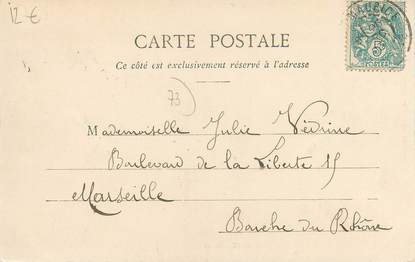 12 €
CARTE POSTALE
Ce côté est exclusivement réservé à l'adresse
5c
POSTES
73
Mademoiselle Julie Védrine
Boulevard de la Liberte 15
Marseille
Bouche du Rhône